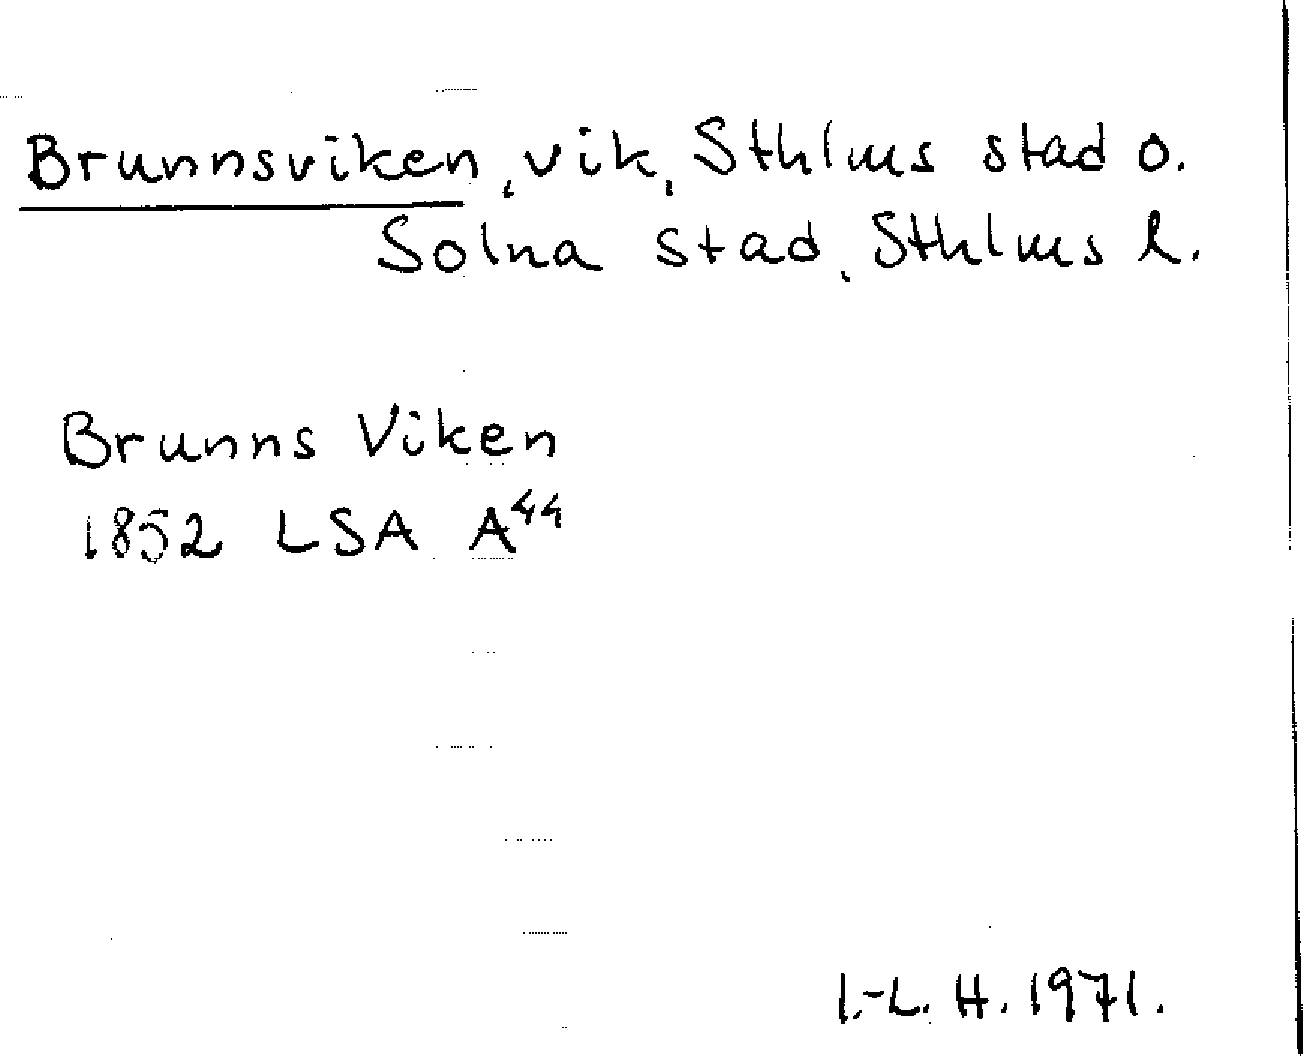 Brunnsviken, vik, Sthlms stad o.
Solna stad, Sthlms l.
Brunns Viken
1852 LSA A44
I.-L. H. 1971.